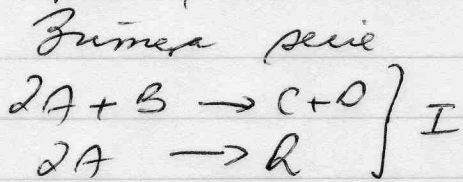 Primera serie
2A + B → C + D } I
2A → R